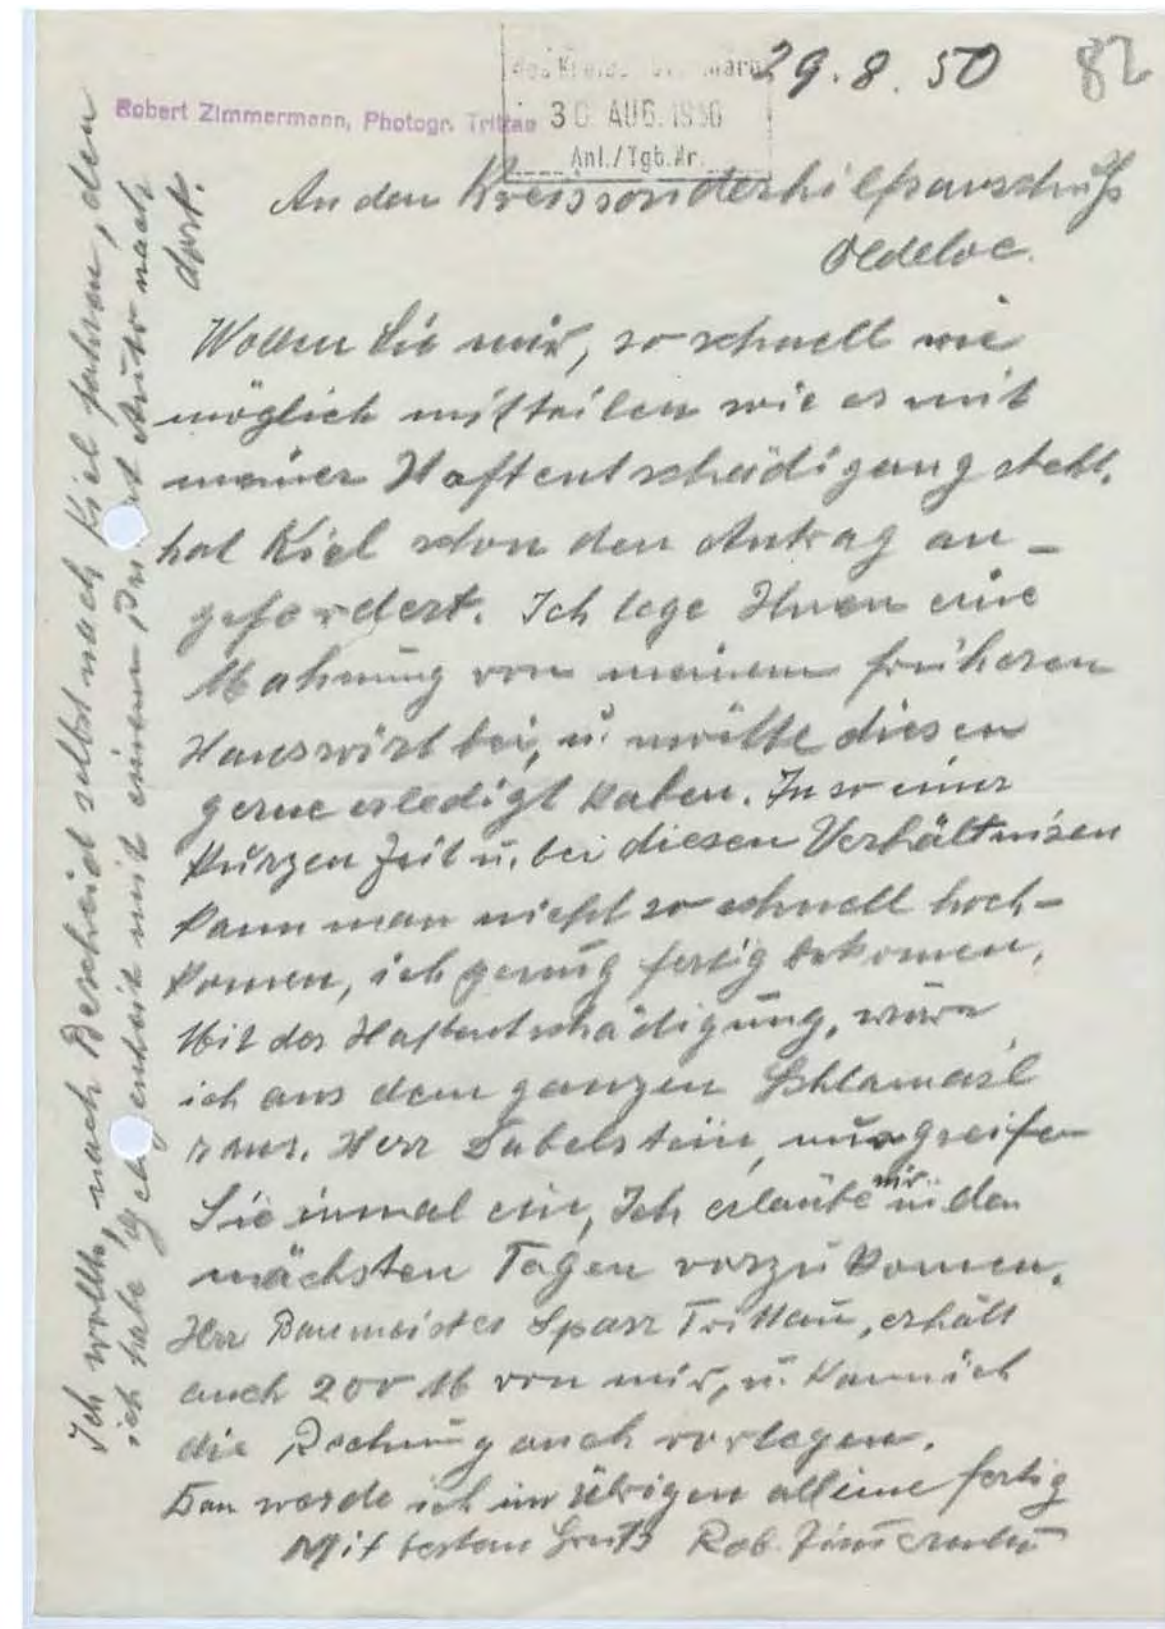 29.8.50
82
des Kreises Stormarn
30. AUG. 1950
Anl./Tgb.Nr.
Robert Zimmermann, Photogr. Trittau
An den Kreissonderhilfsausschuß
Oldeloe.
Wollen Sie mir, so schnell wie
möglich mitteilen wie es mit
meiner Haftentschädigung steht.
hat Kiel schon den Antrag an-
gefordert. Ich lege Ihnen eine
Mahnung von meinem früheren
Hauswirt bei, u. möchte diesen
gerne erledigt haben. In so einer
kurzen Zeit u. bei diesen Verhältnisen
kann man nicht so schnell hoch-
komen, ich genug fertig bekomen,
Mit der Haftentschädigung, wäre
ich aus dem ganzen Schlamasl
raus. Herr Dabelstein, nun greifen
Sie inmal ein, Ich erlaube mir in den
nächsten Tagen vorzukomen.
Herr Baumeister Sparr Trittau, erhält
auch 200 M von mir, u. kann ich
die Rechnung auch vorlegen.
Dan werde ich im übrigen alleine fertig
Mit bestem Gruß Rob. Zimermann
Ich wollte, nach Bescheid selbst nach Kiel fahren, den
ich habe Gelegenheit mit einem mit Auto nach
dort.